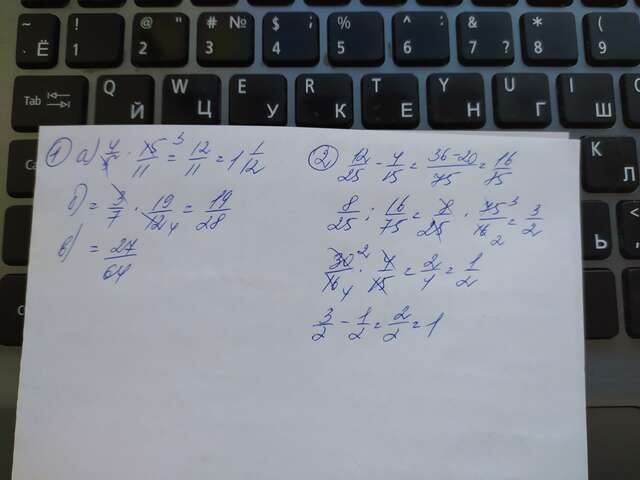 ~ Ё
! 1
@ " 2
# № 3
$ ; 4
% 5
^ : 6
& ? 7
* 8
( 9
Tab
Q Й
W Ц
E У
R К
T Е
Y Н
U Г
I Ш
К Л
Ь
1 а) 4/5 · 15/11 = 12/11 = 1 1/12
б) = 3/7 · 19/12 = 19/28
в) = 27/64
2 12/25 - 4/15 = 36-20/75 = 16/75
8/25 : 16/75 = 8/25 · 75/16 = 3/2
30/16 · 4/15 = 2/4 = 1/2
3/2 - 1/2 = 2/2 = 1